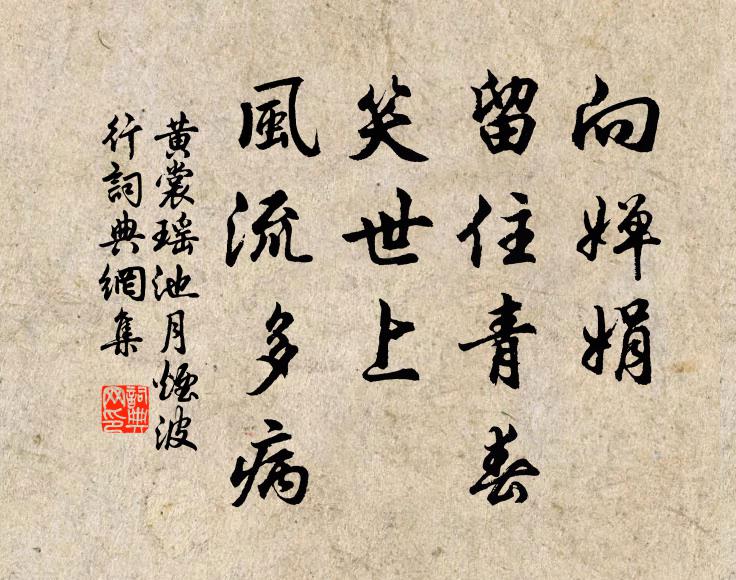 向嬋娟
留住青春
笑世上
風流多病
黃裳瑤池月煙波
行詞典網集
詞典网印